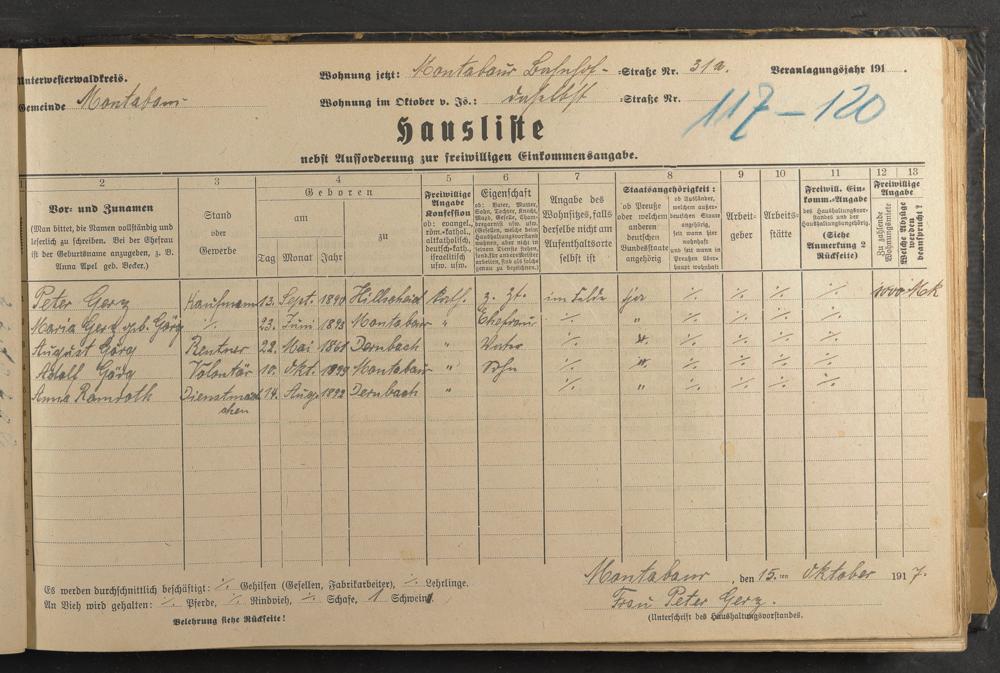 Unterwesterwaldkreis.
Wohnung jetzt: Montabaur Bahnhof- =Straße Nr. 31a. Veranlagungsjahr 191 .
Gemeinde Montabaur
Wohnung im Oktober v. Js.: daselbst =Straße Nr.
117–120
Hausliste
nebst Aufforderung zur freiwilligen Einkommensangabe.
1 2 3 4 5 6 7 8 9 10 11 12 13
Vor- und Zunamen
(Man bittet, die Namen vollständig und
leserlich zu schreiben. Bei der Ehefrau
ist der Geburtsname anzugeben, z. B.
Anna Apel geb. Becker.)
Stand
oder
Gewerbe
Geboren
am zu
Tag Monat Jahr
Freiwillige
Angabe
Konfession
ob: evangel.,
röm.-kathol.,
altkatholisch,
deutsch-kath.,
israelitisch
usw. usw.
Eigenschaft
ob: Vater, Mutter,
Sohn, Tochter, Knecht,
Angabe des
Wohnsitzes, falls
derselbe nicht am
Aufenthaltsorte
selbst ist
Staatsangehörigkeit:
ob Preuße
oder welchem
anderen
deutschen
Bundesstaate
angehörig
ob Ausländer,
welchem außer-
deutschen Staate
angehörig,
seit wann hier
wohnhaft
und seit wann in
Preußen über-
haupt wohnhaft
Arbeit-
geber
Arbeits-
stätte
Freiwill. Ein-
komm.-Angabe
des Haushaltungsvor-
standes und der
Haushaltungsangehörig.
(Siehe
Anmerkung 2
Rückseite)
Freiwillige
Angabe
Zu zahlende
Wohnungsmiete
Welche Abzüge
werden
beansprucht?
Peter Gerz Kaufmann 13. Sept. 1890 Hillscheid kath. z. Zt. im Felde ja ./. ./. ./. ./. 4000 Mk
Maria Gerz geb. Görg ./. 23. Juni 1893 Montabaur " Ehefrau ./. " ./. ./. ./. ./.
August Görg Rentner 22. Mai 1861 Dernbach " Vater ./. " ./. ./. ./. ./.
Adolf Görg Volontär 10. Okt. 1899 Montabaur " Sohn ./. " ./. ./. ./. ./.
Anna Ramroth Dienstmäd- 14. Aug. 1892 Dernbach " ./. " ./. ./. ./. ./.
chen
Es werden durchschnittlich beschäftigt: ./. Gehilfen (Gesellen, Fabrikarbeiter), ./. Lehrlinge.
An Vieh wird gehalten: ./. Pferde, ./. Rindvieh, ./. Schafe, 1 Schwein.
Belehrung siehe Rückseite!
Montabaur, den 15.ten Oktober 1917.
Frau Peter Gerz.
(Unterschrift des Haushaltungsvorstandes.